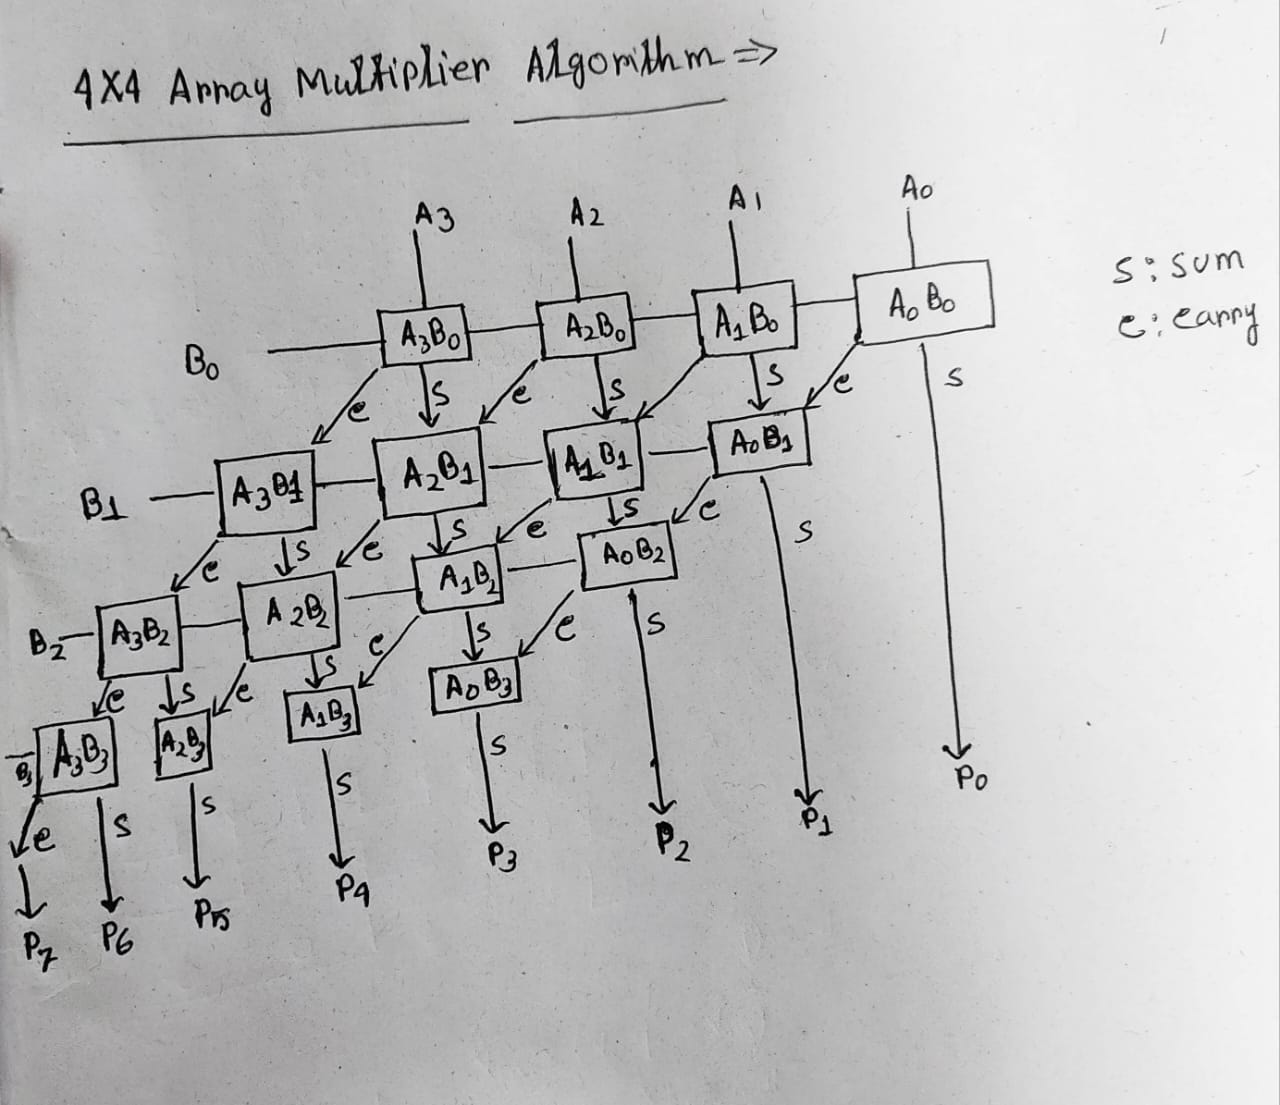 4X4 Array Multiplier Algorithm ⇒
A3 A2 A1 A0
s: sum
c: carry
B0 A3B0 A2B0 A1B0 A0B0
c s c s s c s
B1 A3B1 A2B1 A1B1 A0B1
c s c s c s c s
B2 A3B2 A2B2 A1B2 A0B2
c s c s c s c s
B3 A3B3 A2B3 A1B3 A0B3
c s s s s
P7 P6 P5 P4 P3 P2 P1 P0